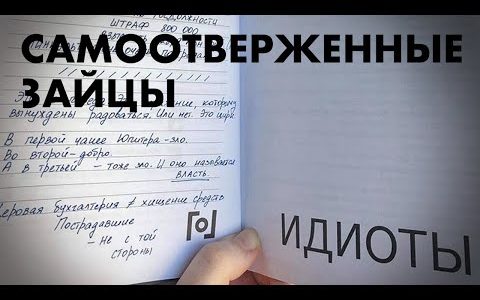 ШТРАФ 800 000
САМООТВЕРЖЕННЫЕ
ЗАЙЦЫ
которому
вынуждены радоваться. Или нет. Это цирк
В первой чаше Юпитера - зло.
Во второй - добро.
А в третьей - тоже зло. И оно называется
власть.
бухгалтерия ≠ хищение средств
Пострадавшие
- Не с той
стороны
ИДИОТЫ